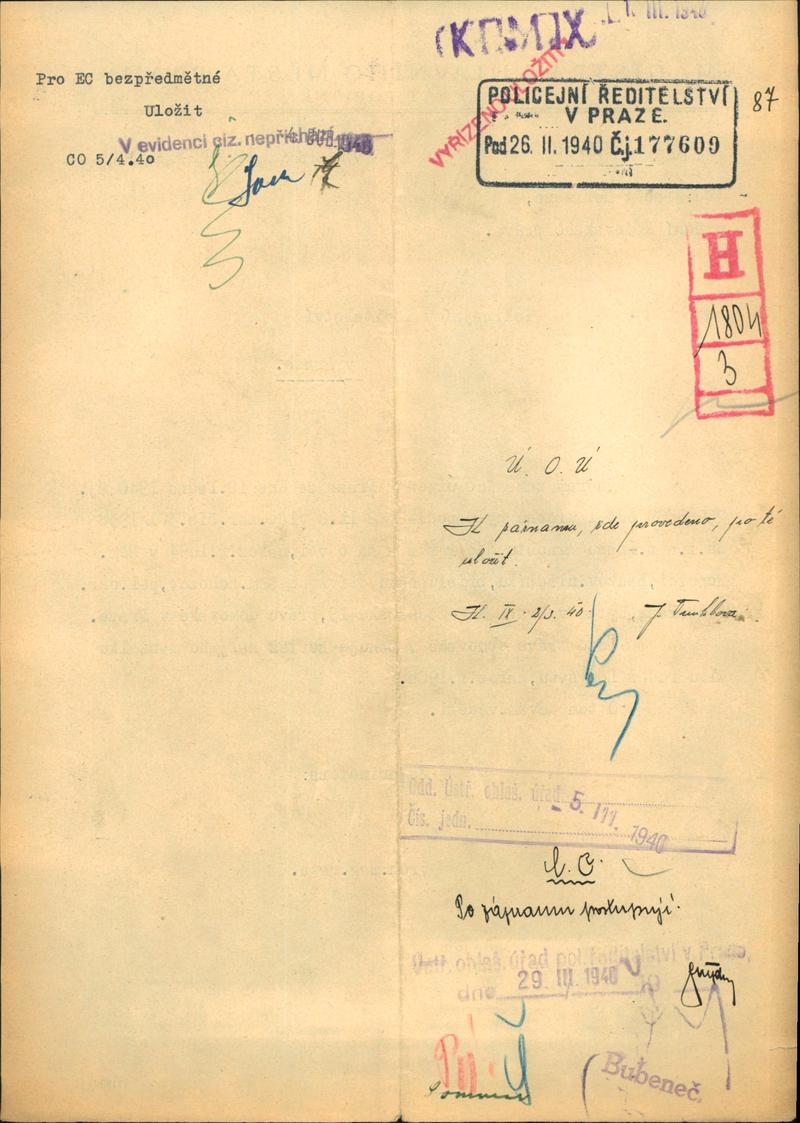 Pro EC bezpředmětné
Uložit
V evidenci ciz. nepřichází
1940
CO 5/4.40
(K[I]M)X
1. III. 1940
VYŘÍZENO ULOŽIT!
POLICEJNÍ ŘEDITELSTVÍ
V PRAZE.
Pod 26. II. 1940 Č.j. 177609
87
H
1804
3
Ú. O. Ú
K záznamu, zde provedeno, po té
uložit.
Kl. IX. 2/3. 40.
Odd. Ústř. ohlaš. úřad
- 5. III. 1940
Čís. jedn.
E. C.
Po záznamu postupuji.
Ústř. ohlaš. úřad pol. ředitelství v Praze,
dne 29. III. 1940 19
Bubeneč.